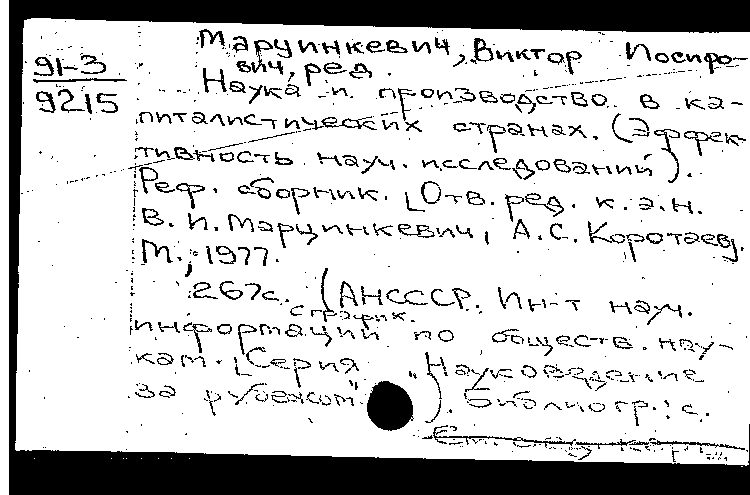 91-3
9215
Марцинкевич, Виктор Иосифо-
вич, ред.
Наука и производство в ка-
питалистических странах. (Эффек-
тивность науч. исследований).
Реф. сборник. [Отв. ред. к.э.н.
В. И. Марцинкевич, А.С. Коротаев].
М., 1977.
267с. (АНСССР. Ин-т науч.
с график.
информации по обществ. нау-
кам. [Серия "Науковедение
за рубежом"). Библиогр.: с.